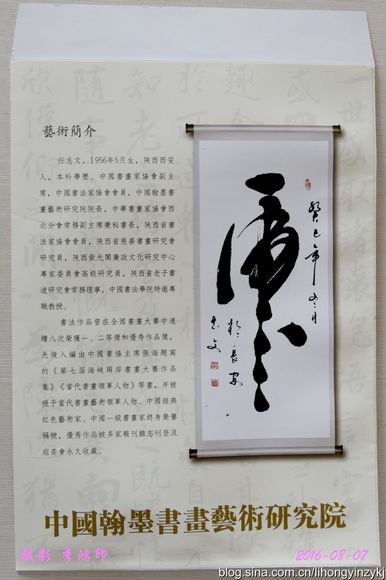 藝術簡介
任志文，1956年5月生，陝西西安
人，本科學歷。中國書畫家協會副主
席，中國書法家協會會員，中國翰墨書
畫藝術研究院院長，中華書畫家協會西
北分會常務副主席兼秘書長，陝西省書
法家協會會員，陝西省慈善書畫研究會
研究員，陝西紫光閣廉政文化研究中心
專家委員會高級研究員，陝西省老子書
道研究會常務理事，中國書法學院特邀專
職教授。
書法作品曾在全國書畫大賽中連
續八次榮獲一、二等獎和優秀作品獎，
先後入編由中國書協主席張海題寫
的《第七屆海峽兩岸書畫大賽作品
集》《當代書畫領軍人物》等書，并被
授予當代書畫藝術領軍人物、中國經典
紅色藝術家、中國一級書畫家終身榮譽
稱號，優秀作品被多家報刊雜志刊登及
組委會永久收藏。
癸巳年冬月
於長安
志文
中國翰墨書畫藝術研究院
攝影 李鴻印
2016-08-07
blog.sina.com.cn/lihongyinzykj